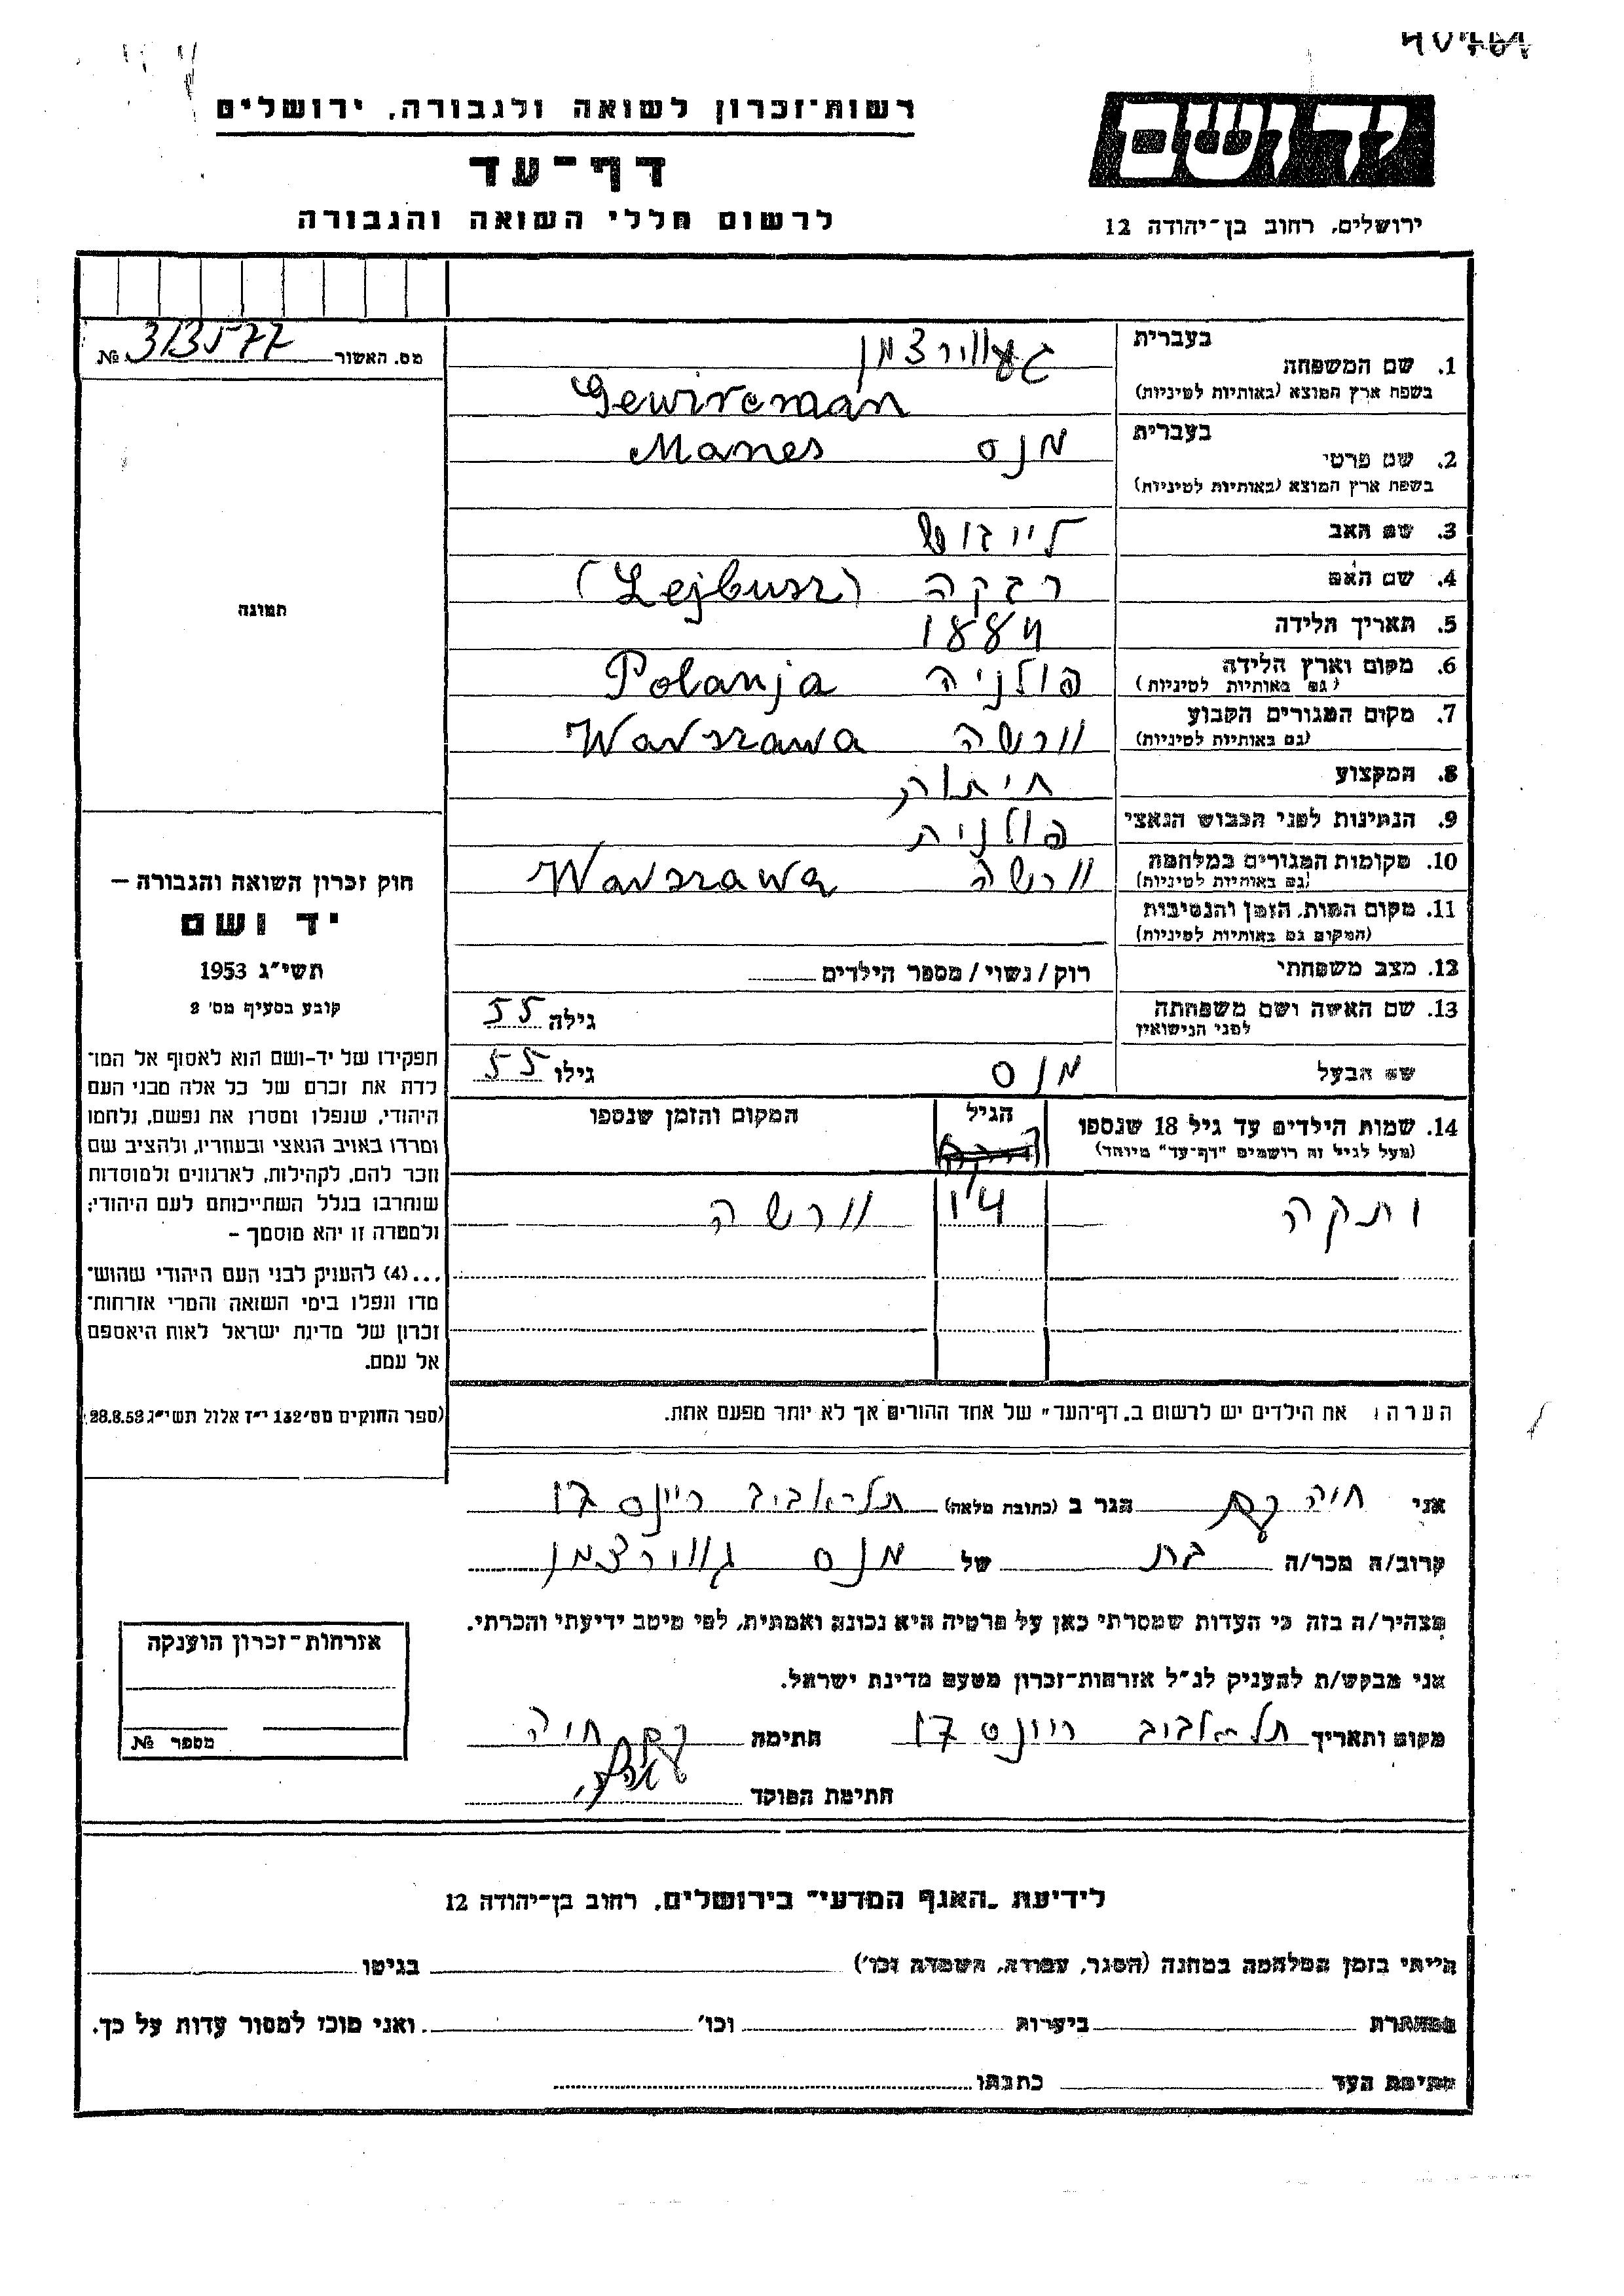 רשות־זכרון לשואה ולגבורה, ירושלים
דף־עד
לרשום חללי השואה והגבורה
יד ושם
ירושלים, רחוב בן־יהודה 12
מס. האשור 313577 №
1. שם המשפחה
בעברית
בשפת ארץ המוצא (באותיות לטיניות)
Gewircman
2. שם פרטי
בעברית מנס Manes
בשפת ארץ המוצא (באותיות לטיניות)
3. שם האב לייבוש
4. שם האם רבקה (Lejbusz)
5. תאריך הלידה 1884
6. מקום וארץ הלידה פולניה Polanja
(גם באותיות לטיניות)
7. מקום המגורים הקבוע וורשה Warszawa
(גם באותיות לטיניות)
8. המקצוע
9. הנתינות לפני הכבוש הנאצי פולנית
10. מקומות המגורים במלחמה וורשה Warszawa
(גם באותיות לטיניות)
11. מקום המות, הזמן והנסיבות
(המקום גם באותיות לטיניות)
12. מצב משפחתי רוק/נשוי/מספר הילדים
13. שם האשה ושם משפחתה גילה 55
לפני הנישואין
שם הבעל מנס גילו 55
14. שמות הילדים עד גיל 18 שנספו הגיל המקום והזמן שנספו
(מעל לגיל זה רושמים "דף־עד" מיוחד)
14 וורשה
הערה: את הילדים יש לרשום ב„דף־העד" של אחד ההורים אך לא יותר מפעם אחת.
תמונה
חוק זכרון השואה והגבורה –
יד ושם
תשי״ג 1953
קובע בסעיף מס׳ 2
תפקידו של יד-ושם הוא לאסוף אל המו־
לדת את זכרם של כל אלה מבני העם
היהודי, שנפלו ומסרו את נפשם, נלחמו
ומרדו באויב הנאצי ובעוזריו, ולהציב שם
וזכר להם, לקהילות, לארגונים ולמוסדות
שנחרבו בגלל השתייכותם לעם היהודי;
ולמטרה זו יהא מוסמך –
...(4) להעניק לבני העם היהודי שהוש־
מדו ונפלו בימי השואה והמרי אזרחות־
זכרון של מדינת ישראל לאות היאספם
אל עמם.
(ספר החוקים מס׳ 132 י״ז אלול תשי״ג 28.8.53)
אני חיה הגר ב (כתובת מלאה) תל־אביב ריינס 17
קרוב/ה מכר/ה בת של מנס גווירצמן
מצהיר/ה בזה כי העדות שמסרתי כאן על פרטיה היא נכונה ואמתית, לפי מיטב ידיעתי והכרתי.
אני מבקש/ת להעניק לנ״ל אזרחות־זכרון מטעם מדינת ישראל.
מקום ותאריך תל־אביב ריינס 17 חתימה חיה
חתימת הפוקד
אזרחות־זכרון הוענקה
מספר №
לידיעת „האגף המדעי" בירושלים, רחוב בן־יהודה 12
הייתי בזמן המלחמה במחנה (הסגר, עבודה, השמדה וכו׳) בגיטו
במחתרת ביערות וכו׳ ואני מוכן למסור עדות על כך.
חתימת העד כתבתו